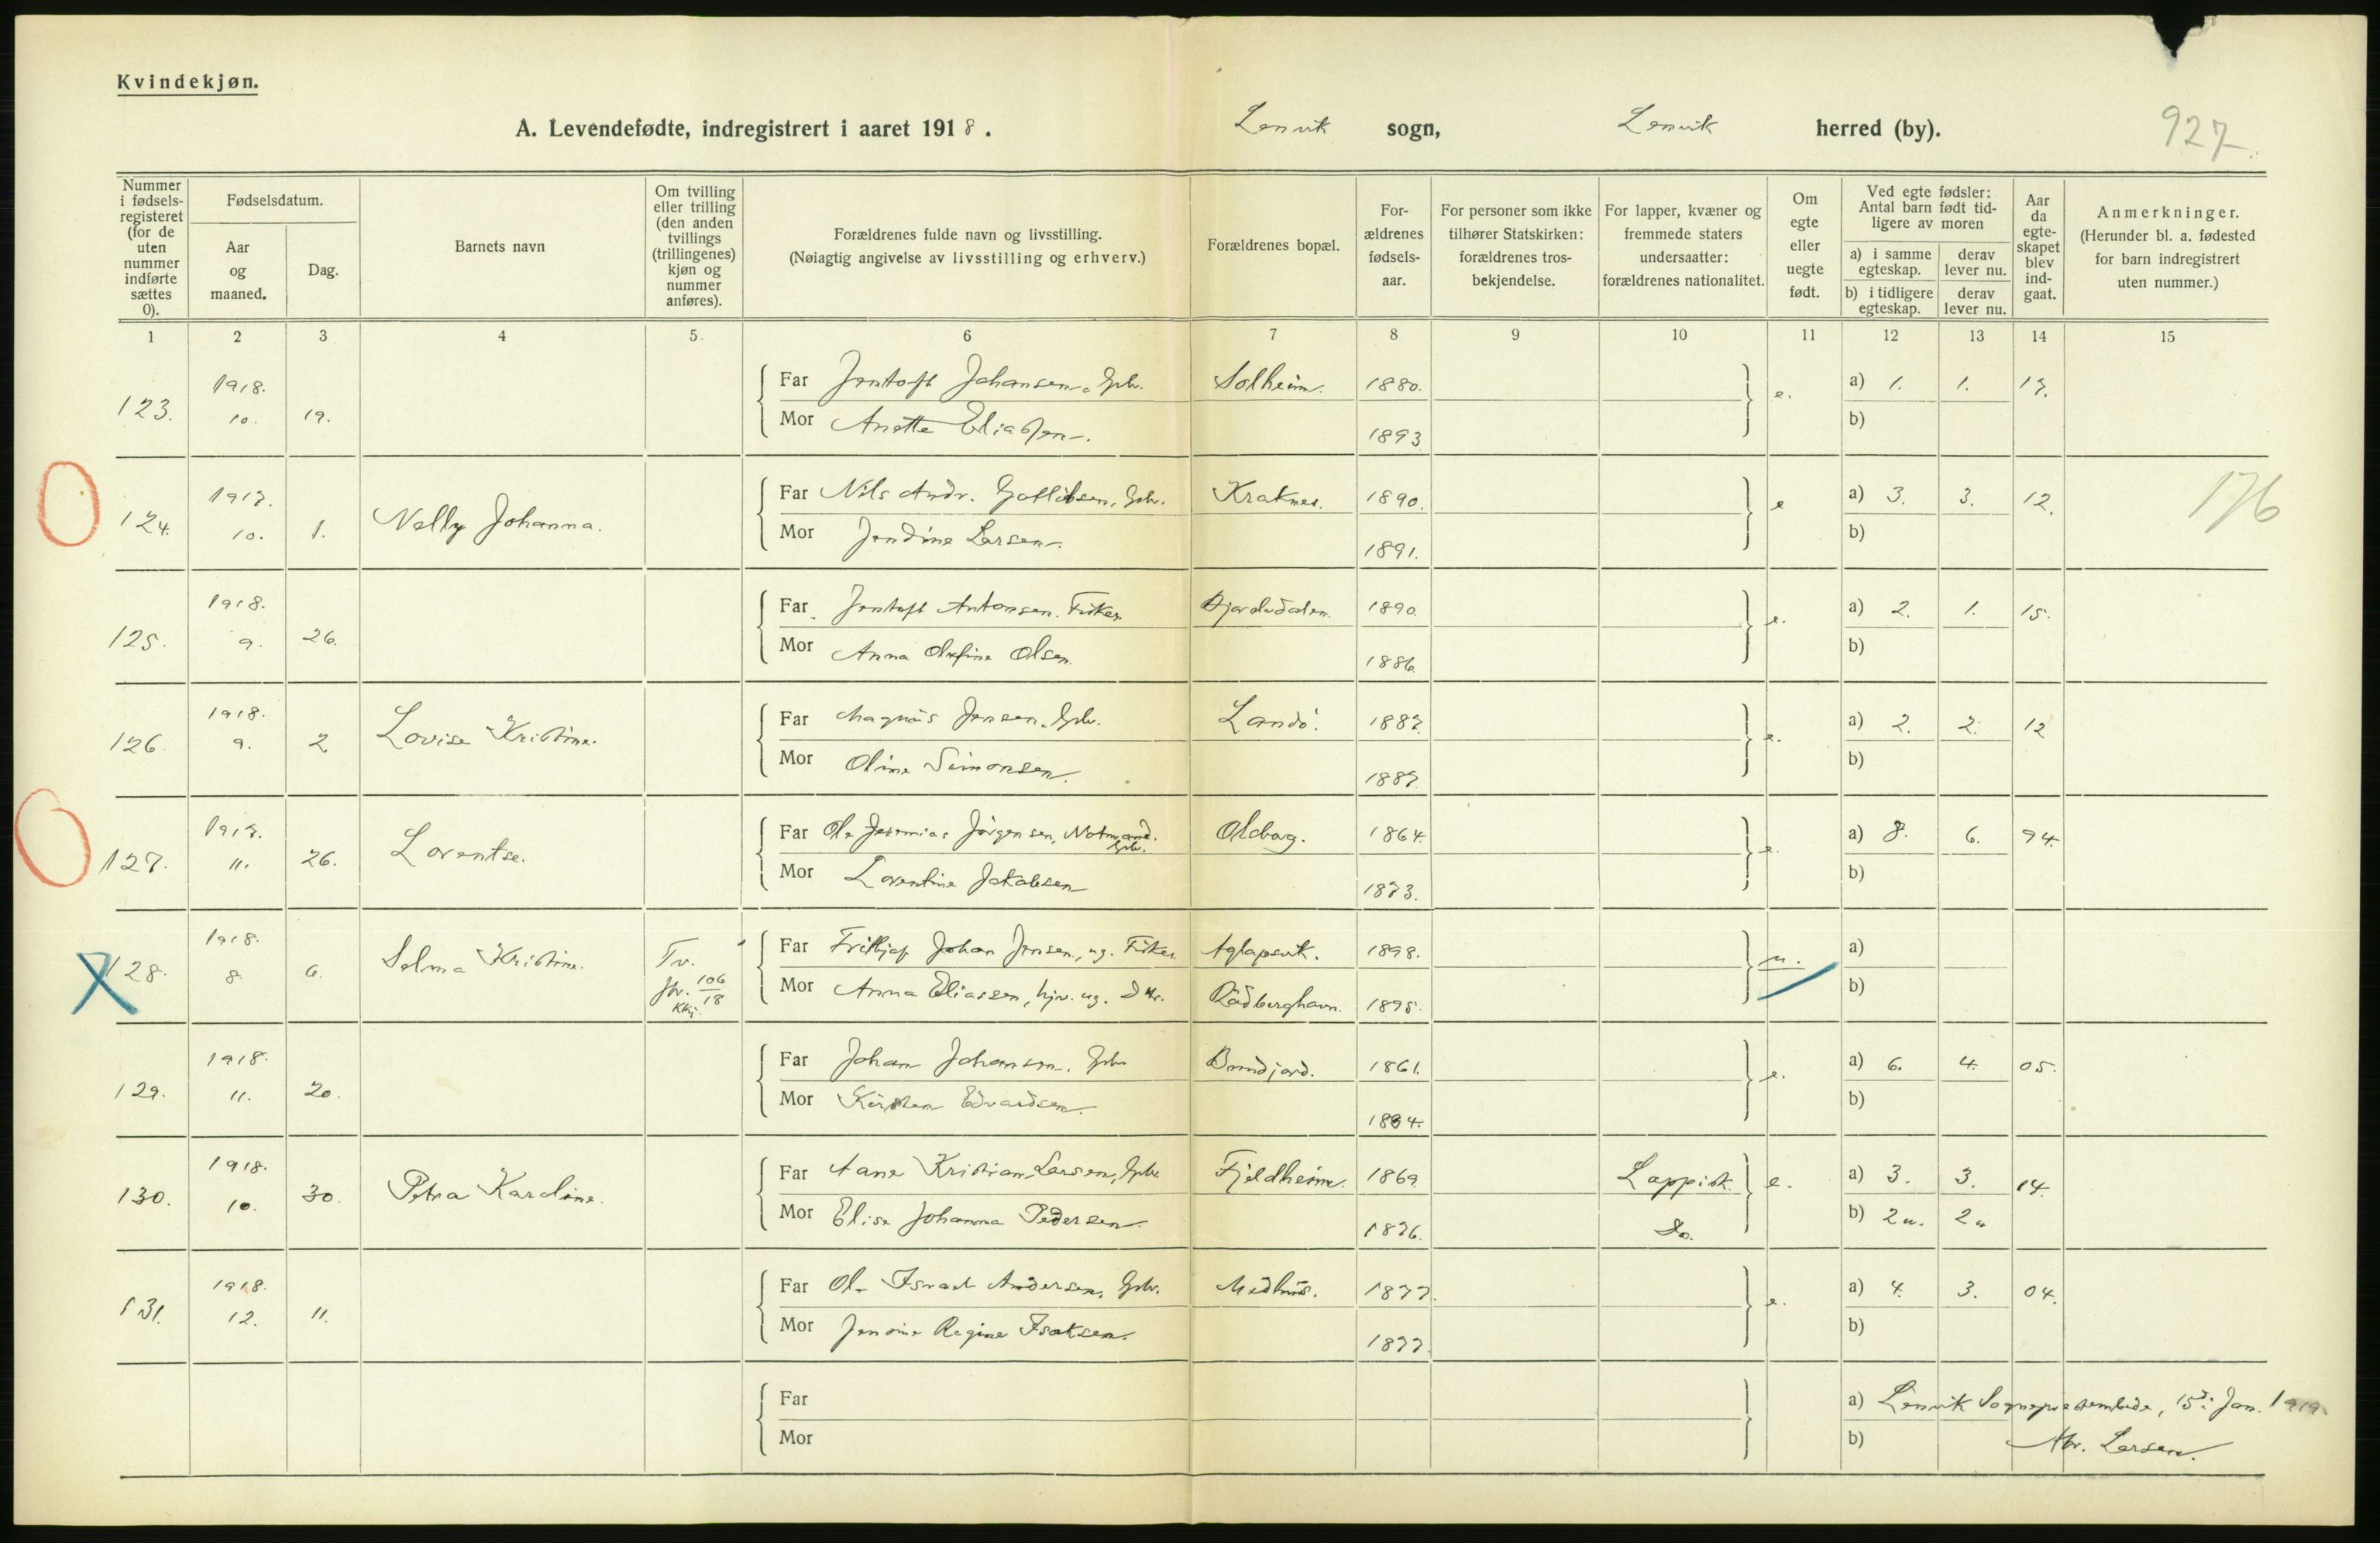 Kvindekjøn.
A. Levendefødte, indregistrert i aaret 1918. Lenvik sogn, Lenvik herred (by). 927.
Nummer i fødselsregisteret (for de uten nummer indførte sættes 0).
Fødselsdatum.
Aar og maaned.
Dag.
Barnets navn
Om tvilling eller trilling (den anden tvillings (trillingenes) kjøn og nummer anføres).
Forældrenes fulde navn og livsstilling.
(Nøiagtig angivelse av livsstilling og erhverv.)
Forældrenes bopæl.
Forældrenes fødselsaar.
For personer som ikke tilhører Statskirken: forældrenes trosbekjendelse.
For lapper, kvæner og fremmede staters undersaatter: forældrenes nationalitet.
Om egte eller uegte født.
Ved egte fødsler: Antal barn født tidligere av moren
a) i samme egteskap. derav lever nu.
b) i tidligere egteskap. derav lever nu.
Aar da egteskapet blev indgaat.
Anmerkninger.
(Herunder bl. a. fødested for barn indregistrert uten nummer.)
1 2 3 4 5. 6 7 8 9 10 11 12 13 14 15
123. 1918. 10. 19. Far Jentoft Johansen, Gbr. Solheim. 1880. e. a) 1. 1. 17.
Mor Anette Eliassen. 1893 b)
124. 1917. 10. 1. Nelly Johanna. Far Nils Andr. Gotlibsen, Gbr. Kraknes. 1890. e a) 3. 3. 12. 176
Mor Jendine Larsen. 1891. b)
125. 1918. 9. 26. Far Jentoft Antonsen. Fisker 1890. e. a) 2. 1. 15.
Mor Anna Olsen. 1886. b)
126. 1918. 9. 2 Lovise Kristine. Far Magnus Jensen, Gbr. Landö. 1887. e. a) 2. 2. 12
Mor Oline Simonsen. 1887. b)
127. 1917. 11. 26. Lorentse. Far Ole Jeremias Jörgensen, Notmand. Gbr. Olaborg. 1864. e. a) 8. 6. 94.
Mor Lorentine Jakobsen 1873. b)
128. 1918. 8. 6. Selma Kristine. Tv. jfr. 106/18 Kkj. Far Fridtjof Johan Jensen, ug. Fisker Aglapsvik. 1898. u. a)
Mor Anna Eliassen, hjv. ug. Dtr. Rödberghavn. 1895. b)
129. 1918. 11. 20. Far Johan Johansen. Gbr Bundjord. 1861. e. a) 6. 4. 05.
Mor Kirsten Edvardsen. 1884. b)
130. 1918. 10. 30. Petra Karoline. Far Aane Kristian Larsen, Gbr. Fjeldheim. 1869 Lappisk. e. a) 3. 3. 14.
Mor Elise Johanna Pedersen 1876. Do. b) 2u. 2u
131. 1918. 12. 11. Far Ole Israel Andersen, Gbr. Medhus. 1877. e. a) 4. 3. 04.
Mor Jensine Regine Isaksen. 1877. b)
Far a) Lenvik Sogneprestembede, 15de Jan. 1919.
Mor b) Larsen.